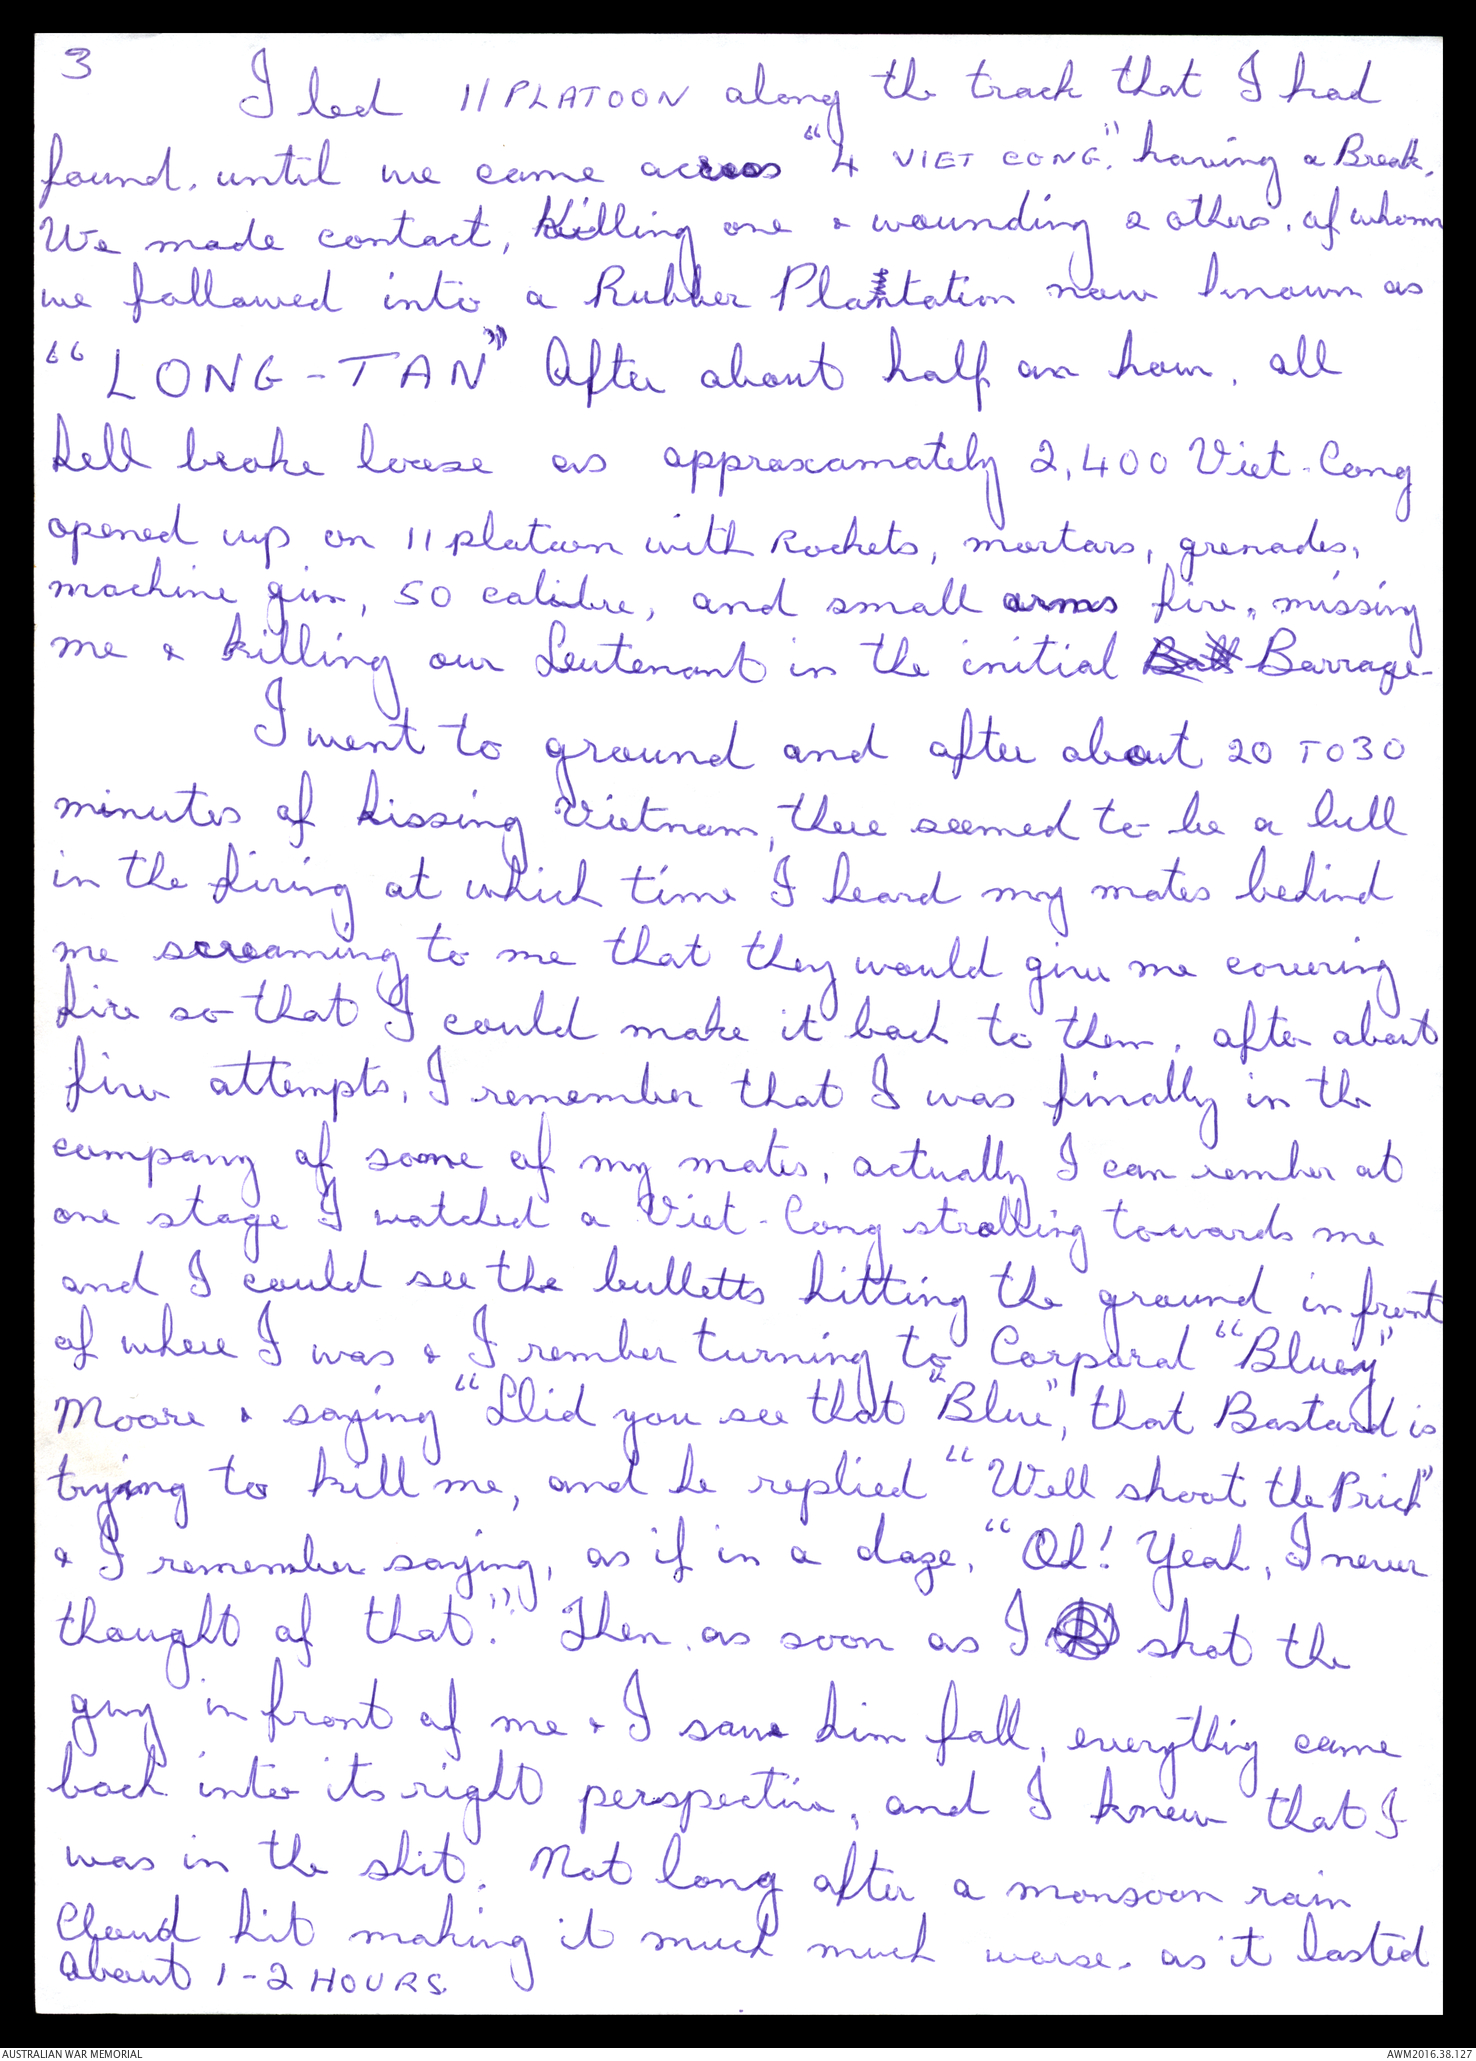 3
I led 11 PLATOON along the track that I had
found, until we came across "4 VIET CONG". having a Break.
We made contact, killing one & wounding 2 others, of whom
we followed into a Rubber Plantation now known as
"LONG-TAN" After about half an hour, all
hell broke loose as approxamately 2,400 Viet-Cong
opened up on 11 platoon with Rockets, mortars, grenades,
machine gun, 50 calibre, and small arms fire, missing
me & killing our Leutenant in the initial Barrage-
I went to ground and after about 20 TO 30
minutes of kissing Vietnam, there seemed to be a lull
in the firing at which time I heard my mates behind
me screaming to me that they would give me covering
fire so that I could make it back to them, after about
five attempts, I remember that I was finally in the
company of some of my mates, actually I can rember at
one stage I watched a Viet-Cong strolling towards me
and I could see the bulletts hitting the ground in front
of where I was & I rember turning to Corporal "Bluey"
Moore & saying "Did you see that "Blue", that Bastard is
trying to kill me, and he replied "Well shoot the Prick"
& I remember saying, as if in a daze, "Oh! Yeah, I never
thought of that". Then, as soon as I shot the
guy in front of me & I saw him fall, everything came
back into its right perspective, and I knew that I
was in the shit. Not long after a monsoon rain
Cloud hit making it much much worse, as it lasted
About 1-2 HOURS.
AUSTRALIAN WAR MEMORIAL
AWM2016.38.127